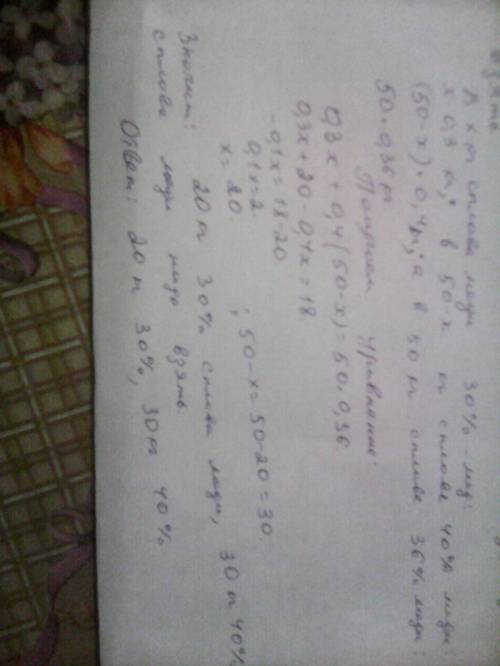 взять
В х т сплава меди 30% - меди
х · 0,3 т, в 50-х т сплаве 40% меди:
(50-х) · 0,4 т; а в 50 т сплаве 36% меди:
50 · 0,36 т
Получаем уравнение:
0,3х + 0,4(50-х) = 50 · 0,36
0,3х + 20 - 0,4х = 18
-0,1х = 18-20
0,1х=2
х = 20 ; 50-х = 50-20 = 30
Значит: 20 т 30% сплава меди, 30 т 40%
сплава меди надо взять
Ответ: 20 т 30%, 30 т 40%